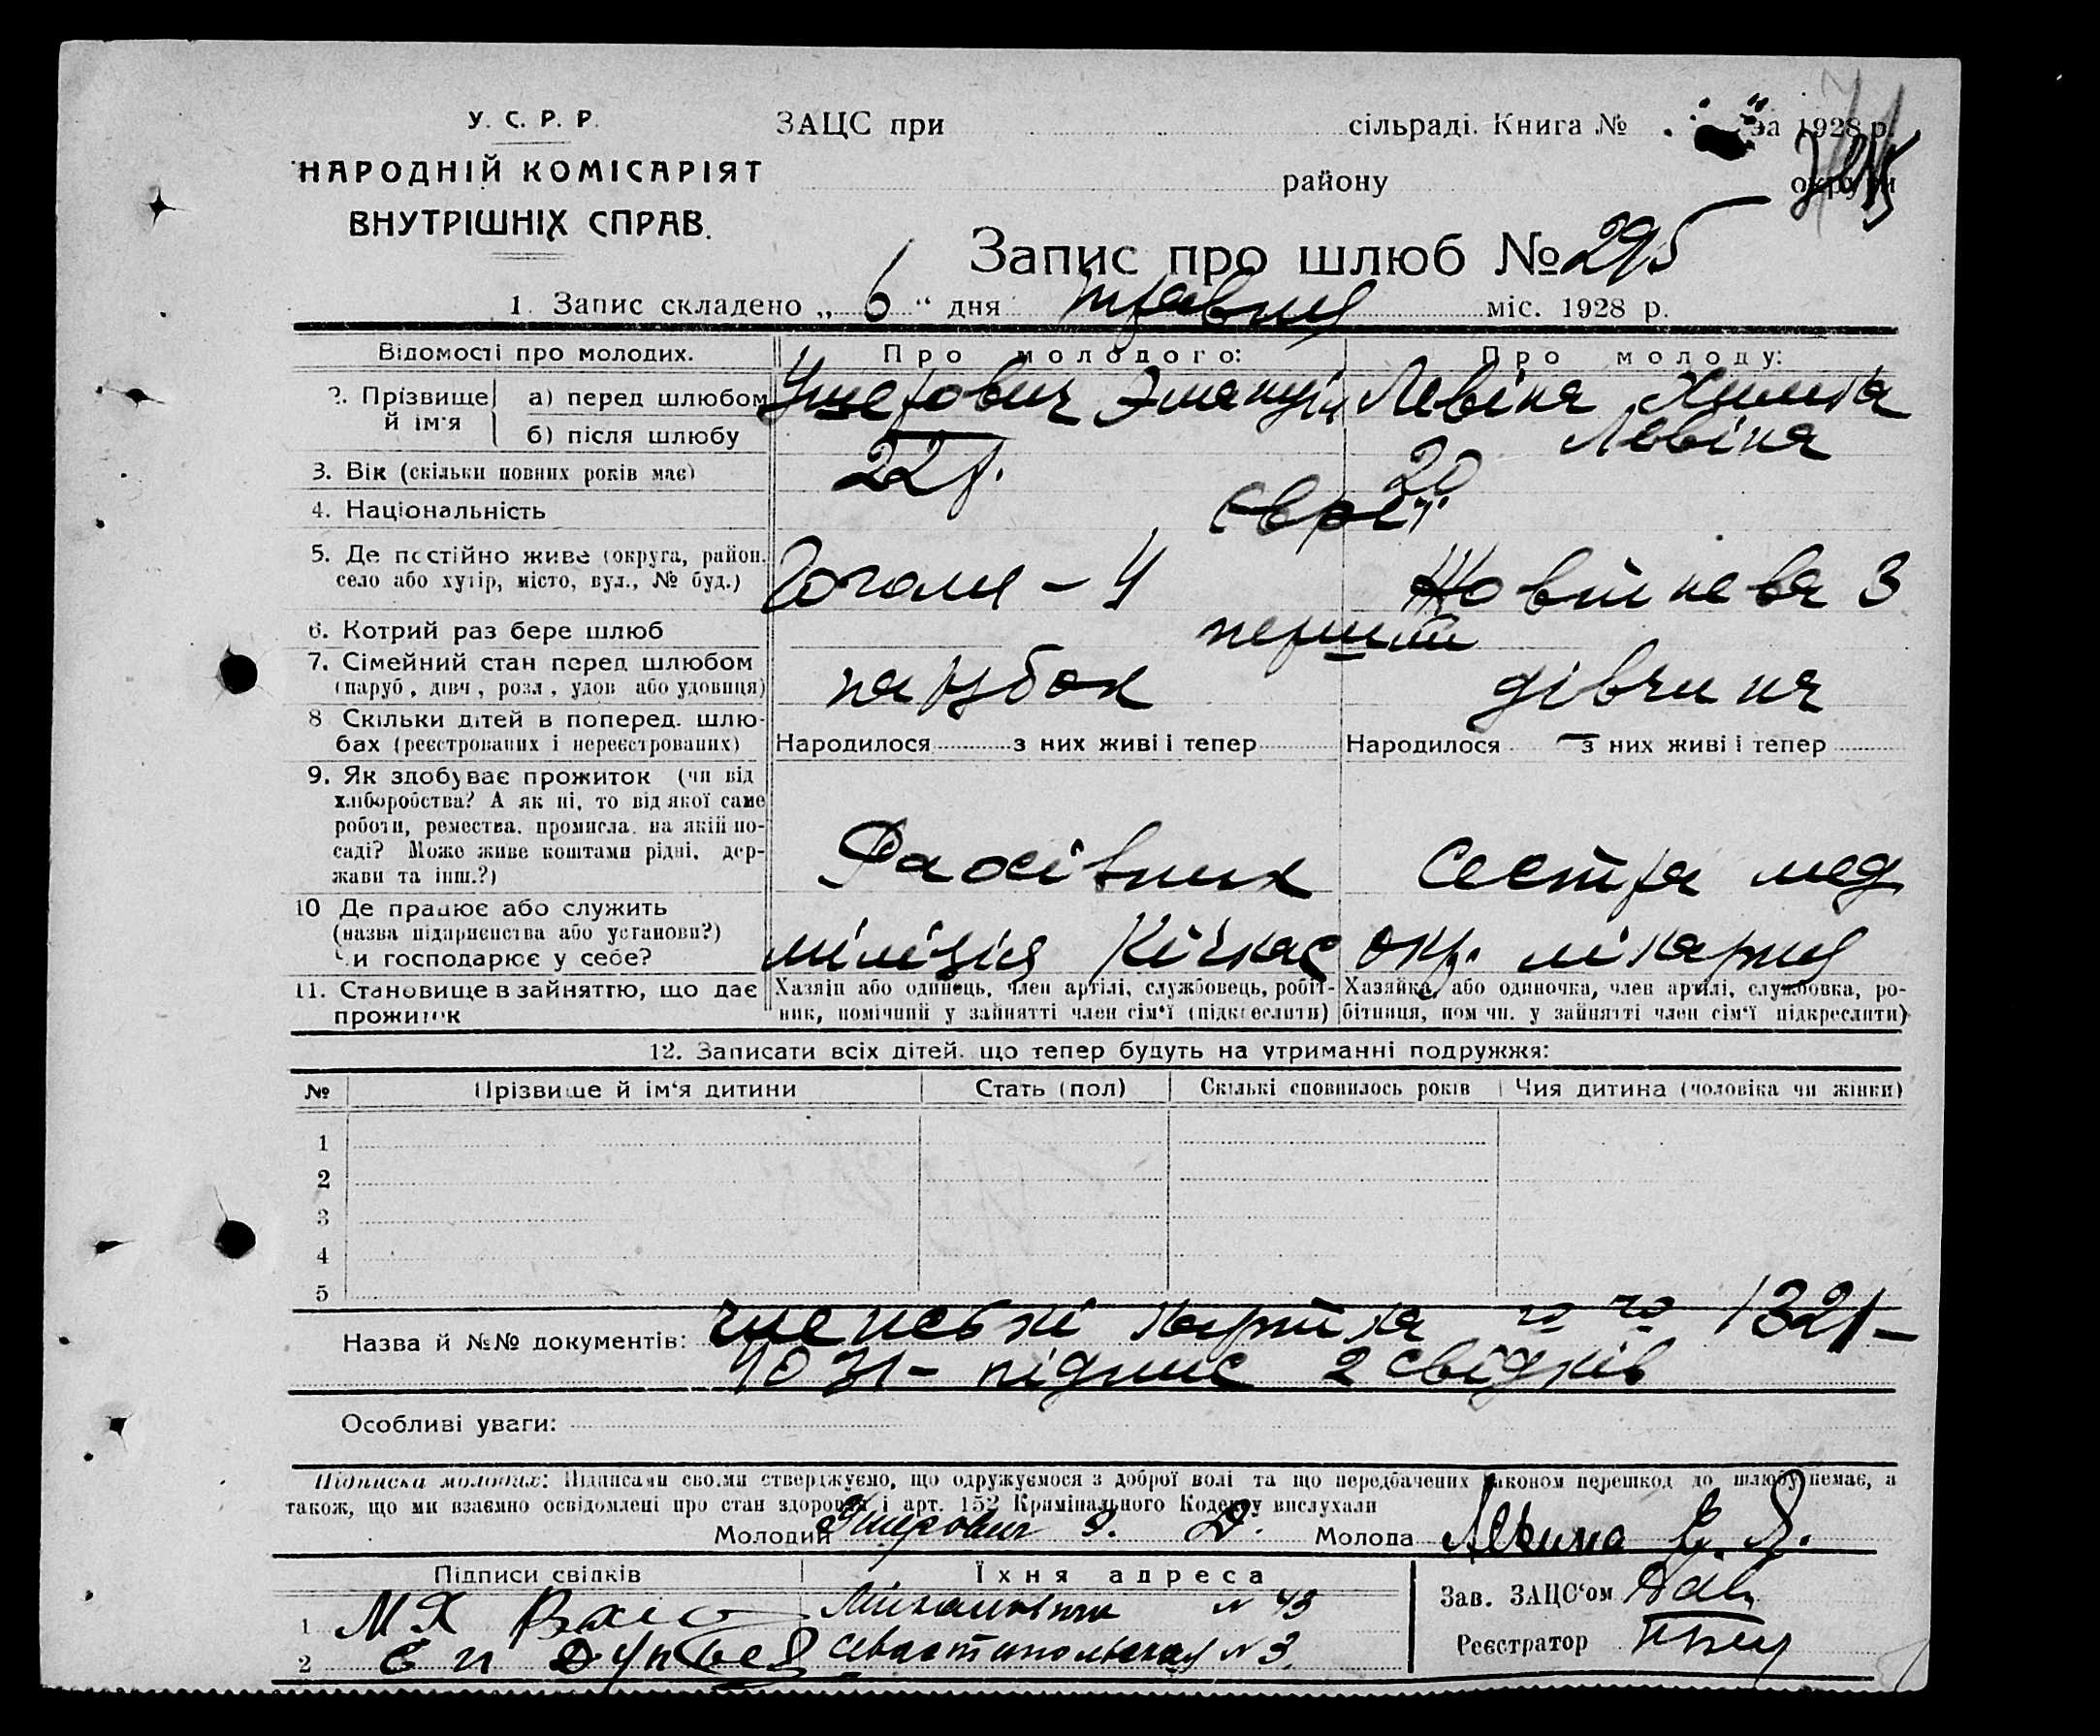 У. С. Р. Р.
НАРОДНІЙ КОМІСАРІЯТ
ВНУТРІШНІХ СПРАВ.
ЗАЦС при сільраді. Книга № за 1928 р.
району округи
Запис про шлюб № 295
1. Запис складено „ 6 “ дня травня міс. 1928 р.
Відомості про молодих. Про молодого: Про молоду:
2. Прізвище й ім'я
а) перед шлюбом Ушерович Левіна
б) після шлюбу Левіна
3. Вік (скільки повних років має) 22 р. 20
4. Національність євреї
5. Де постійно живе (округа, район, село або хутір, місто, вул., № буд.) Гоголя – 4 Жовтнева 3
6. Котрий раз бере шлюб перший
7. Сімейний стан перед шлюбом (паруб., дівч., розл., удов. або удовиця) парубок дівчина
8 Скільки дітей в поперед. шлюбах (реєстрованих і нереєстрованих) Народилося з них живі і тепер Народилося з них живі і тепер
9. Як здобуває прожиток (чи від хліборобства? А як ні, то від якої саме роботи, ремества, промисла, на якій посаді? Може живе коштами рідні, держави та інш.?) Фахівник Сестра мед
10 Де працює або служить (назва підприємства або установи?) Чи господарює у себе? міліція Кічкас окр. лікарня
11. Становище в зайняттю, що дає прожиток
Хазяїн або одинець, член артілі, службовець, робітник, помічний у зайнятті член сім'ї (підкреслити)
Хазяйка, або одиночка, член артілі, службовка, робітниця, помічн. у зайнятті член сім'ї підкреслити)
12. Записати всіх дітей, що тепер будуть на утриманні подружжя:
№ Прізвище й ім'я дитини Стать (пол) Скількі сповнилось років Чия дитина (чоловіка чи жінки)
1
2
3
4
5
Назва й №№ документів: членські картка 1321 –
підпис 2 свідків
Особливі уваги:
Підписка молодих: Підписами своїми стверджуємо, що одружуємося з доброї волі та що передбачених законом перешкод до шлюбу немає, а
також, що ми взаємно освідомлені про стан здоровля і арт. 152 Кримінального Кодексу вислухали
Молодий Ушерович Э. Молода Левина
Підписи свідків Їхня адреса
1 М Х № 43
2 Севастопольская № 3
Зав. ЗАЦС'ом
Реєстратор